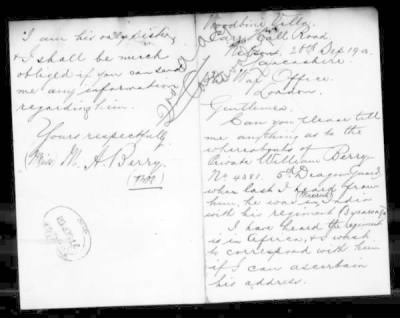 Woodbine Villa,
Hall Road,
28th Sep 190
Lancashire.
War Office.
London.
Gentlemen.
Can you please tell
me anything as to the
whereabouts of
Private William Berry
No 4381. 5th Dragoon Guards,
when last I heard from
him, he was in India
with his regiment
I have heard the regiment
is in Africa, & I wish
to correspond with him
if I can ascertain
his address.
I am his only sister,
& I shall be much
obliged if you can send
me any information
regarding him.
Yours respectfully
M. A. Berry.